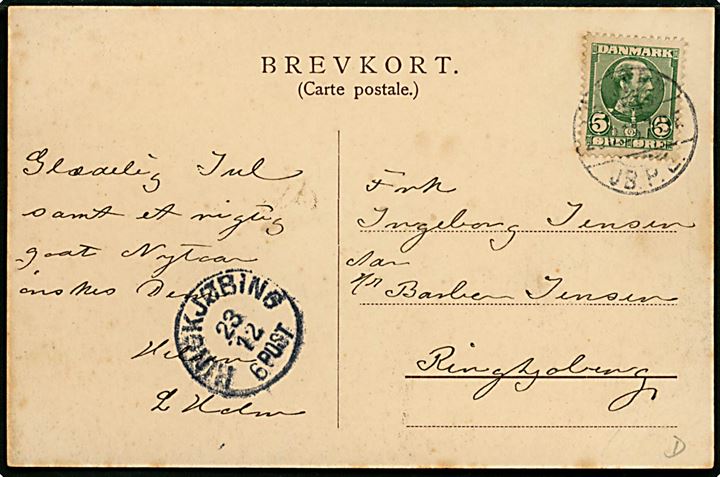 BREVKORT.
(Carte postale.)
DANMARK
5 5
ØRE ØRE
JB.P.
Glædelig Jul
samt et rigtig
godt Nytaar
ønskes De
Frk
Ingeborg Jensen
Hr Barber Jensen
Ringkjøbing
RINGKJØBING
23
12
6 POST
L Holm
D